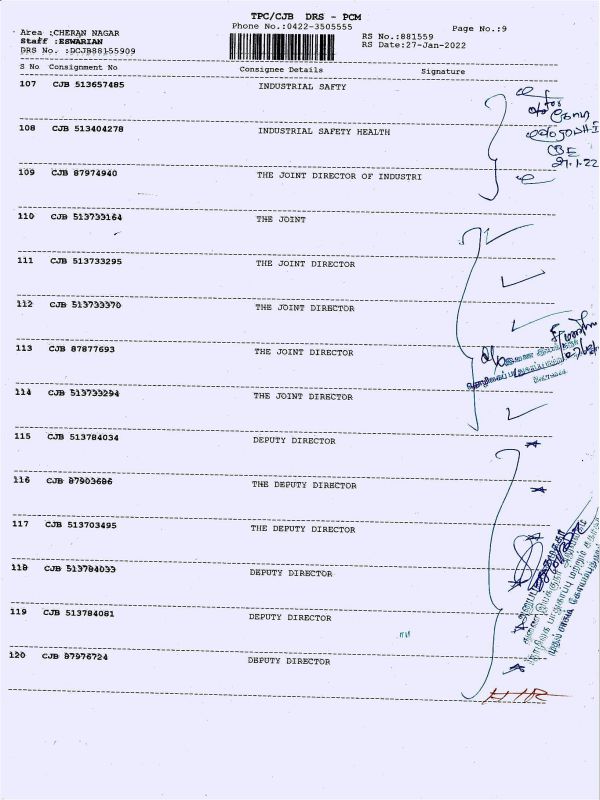 TPC/CJB DRS - PCM
Phone No.:0422-3505555
Page No.:9
Area :CHERAN NAGAR
Staff :ESWARIAN
DRS No. :DCJB88155909
RS No.:881559
RS Date:27-Jan-2022
S No Consignment No Consignee Details Signature
107 CJB 513657485 INDUSTRIAL SAFTY
108 CJB 513404278 INDUSTRIAL SAFETY HEALTH
109 CJB 87974940 THE JOINT DIRECTOR OF INDUSTRI
110 CJB 513733164 THE JOINT
111 CJB 513733295 THE JOINT DIRECTOR
112 CJB 513733370 THE JOINT DIRECTOR
113 CJB 87877693 THE JOINT DIRECTOR
114 CJB 513733294 THE JOINT DIRECTOR
115 CJB 513784034 DEPUTY DIRECTOR
116 CJB 87903686 THE DEPUTY DIRECTOR
117 CJB 513703495 THE DEPUTY DIRECTOR
118 CJB 513784033 DEPUTY DIRECTOR
119 CJB 513784081 DEPUTY DIRECTOR
120 CJB 87976724 DEPUTY DIRECTOR